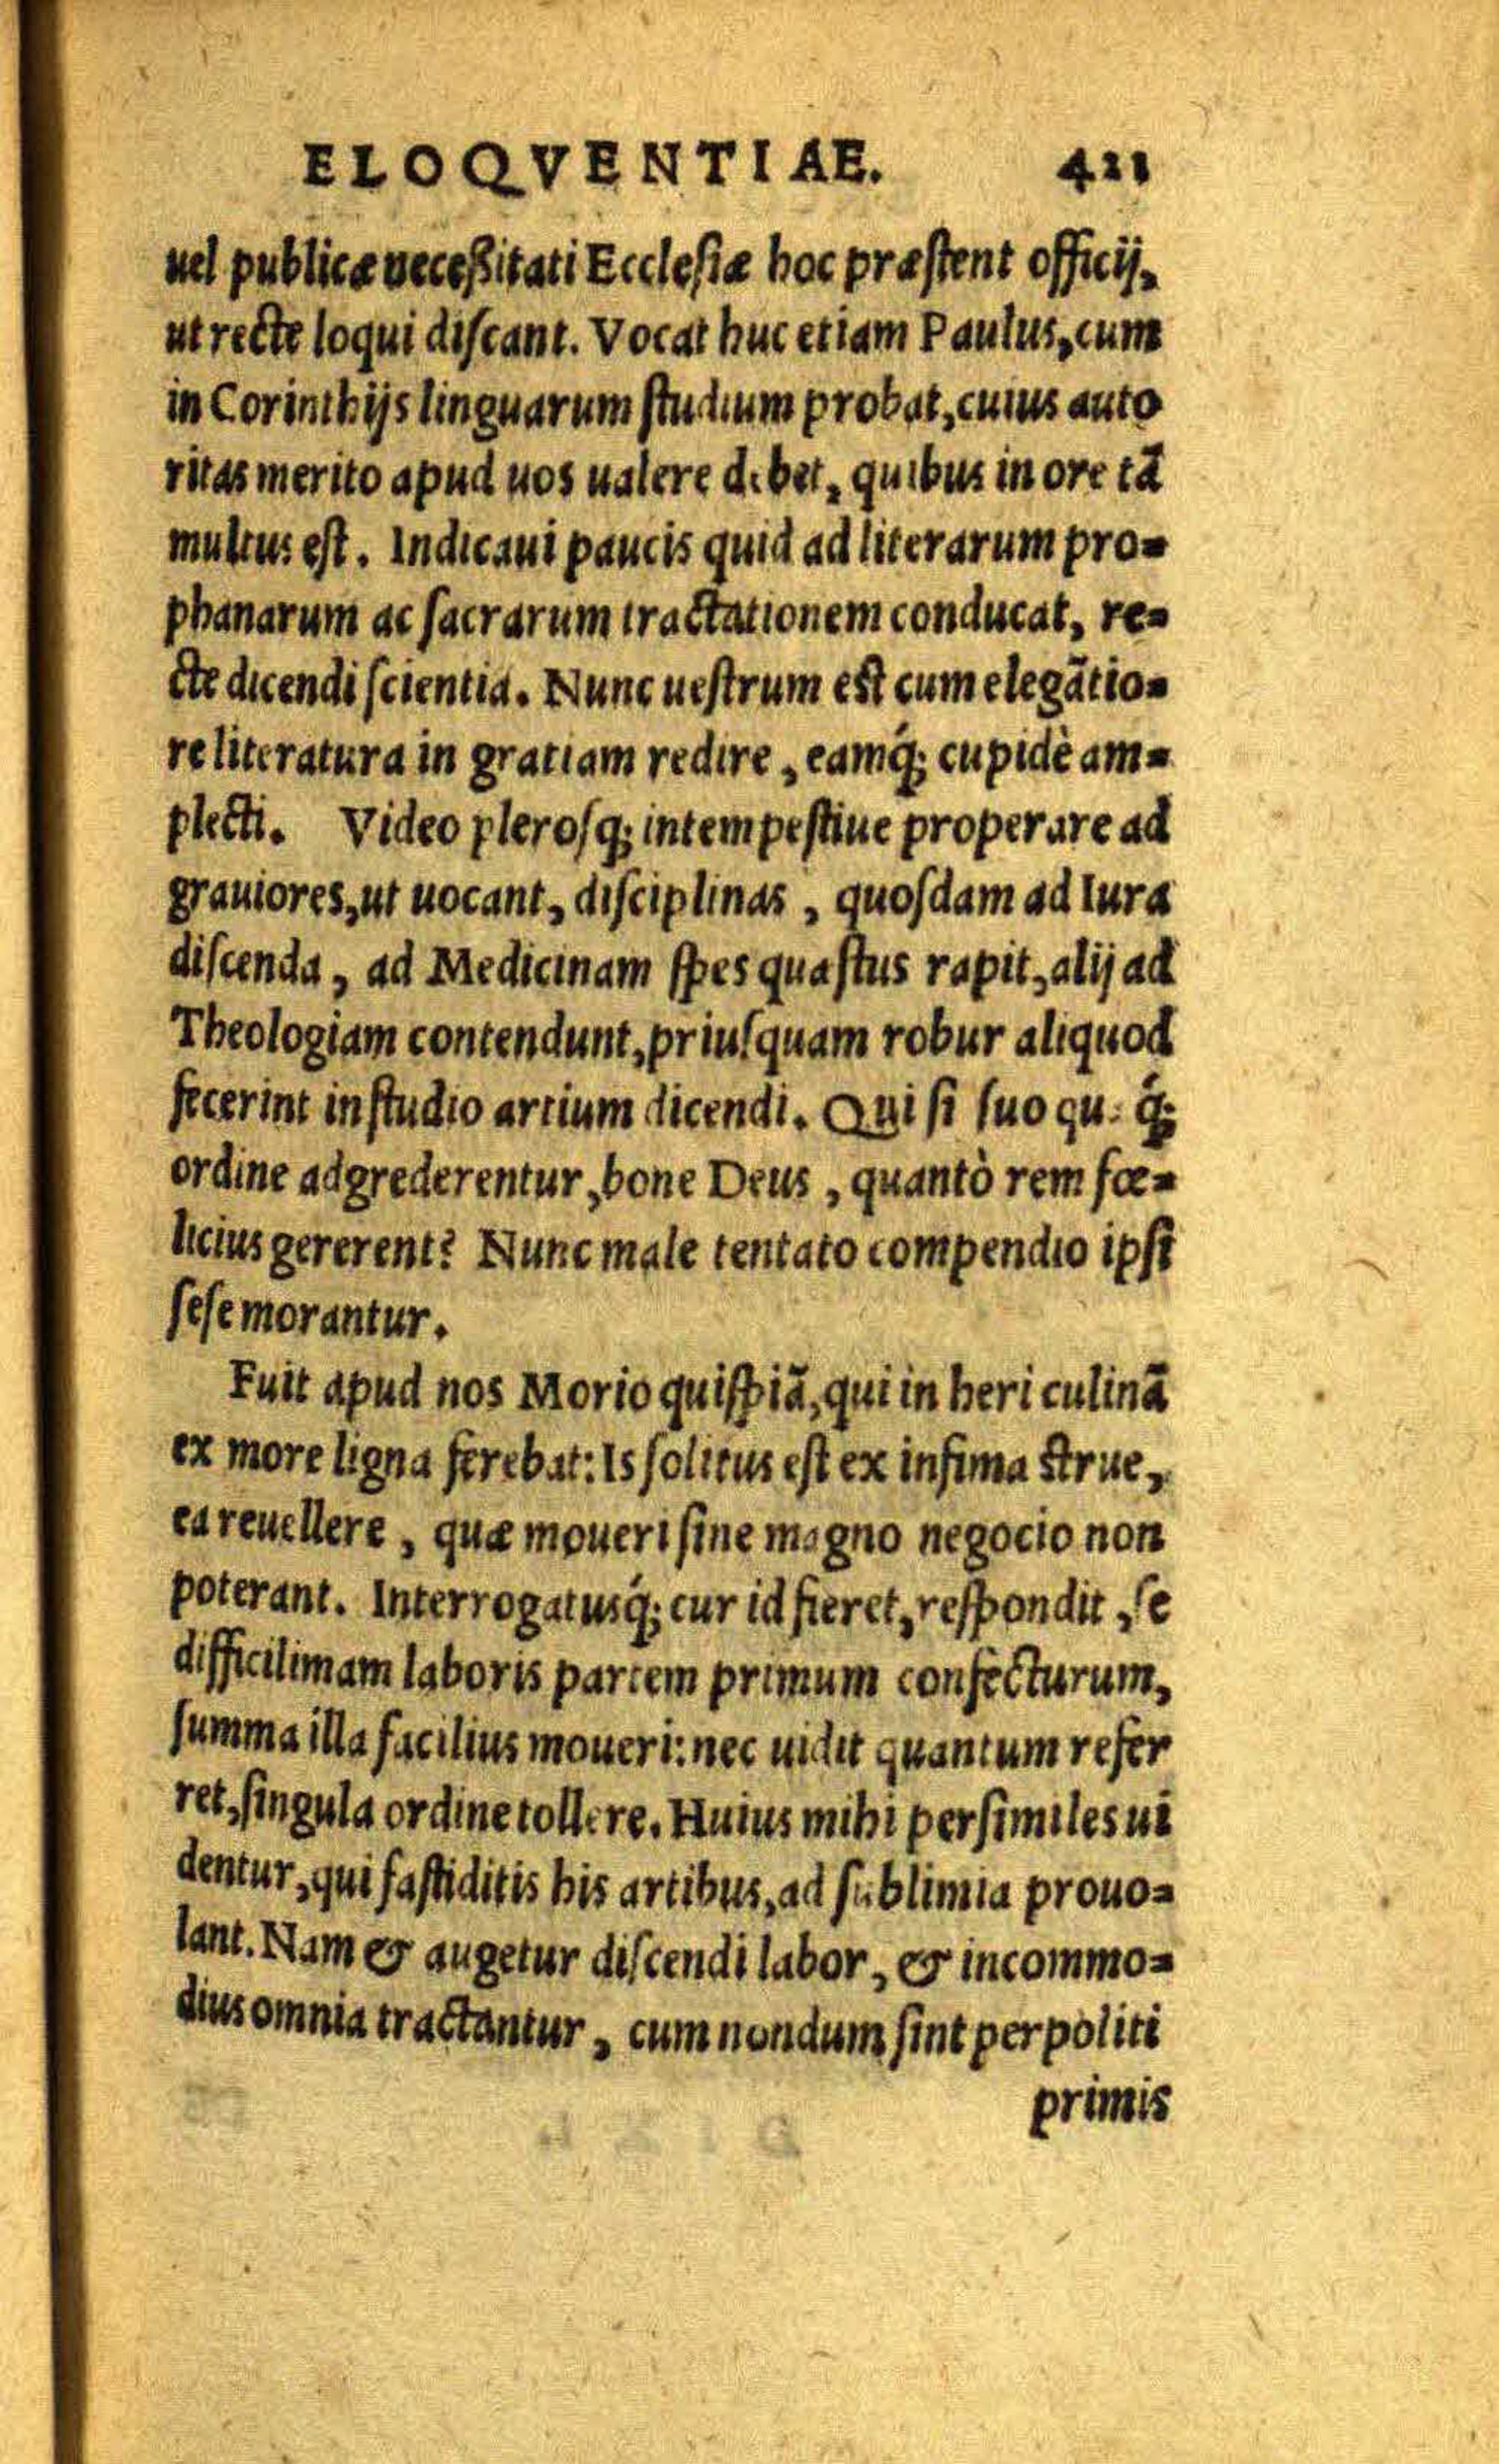 ELOQVENTIAE. 421
uel publicæ neceßitati Ecclesiæ hoc præstent officij,
ut recte loqui discant. Vocat huc etiam Paulus, cum
in Corinthijs linguarum studium probat, cuius auto
ritas merito apud uos ualere debet, quibus in ore tā
multus est. Indicaui paucis quid ad literarum pro=
phanarum ac sacrarum tractationem conducat, re=
cte dicendi scientia. Nunc uestrum est cum elegātio=
re literatura in gratiam redire, eamq́; cupidè am=
plecti. Video plerosq; intempestiue properare ad
grauiores, ut uocant, disciplinas, quosdam ad Iura
discenda, ad Medicinam spes quæstus rapit, alij ad
Theologiam contendunt, priusquam robur aliquod
fecerint in studio artium dicendi. Qui si suo q́;
ordine adgrederentur, bone Deus, quantò rem fœ=
licius gererent? Nunc male tentato compendio ipsi
sese morantur.
Fuit apud nos Morio quispiā, qui in heri culinā
ex more ligna ferebat: Is solitus est ex infima strue,
ea reuellere, quæ moueri sine magno negocio non
poterant. Interrogatusq́; cur id fieret, respondit, se
difficilimam laboris partem primum confecturum,
summa illa facilius moueri: nec uidit quantum refer
ret, singula ordine tollere. Huius mihi persimiles ui
dentur, qui fastiditis his artibus, ad sublimia prouo=
lant. Nam & augetur discendi labor, & incommo=
dius omnia tractantur, cum nondum sint perpoliti
primis